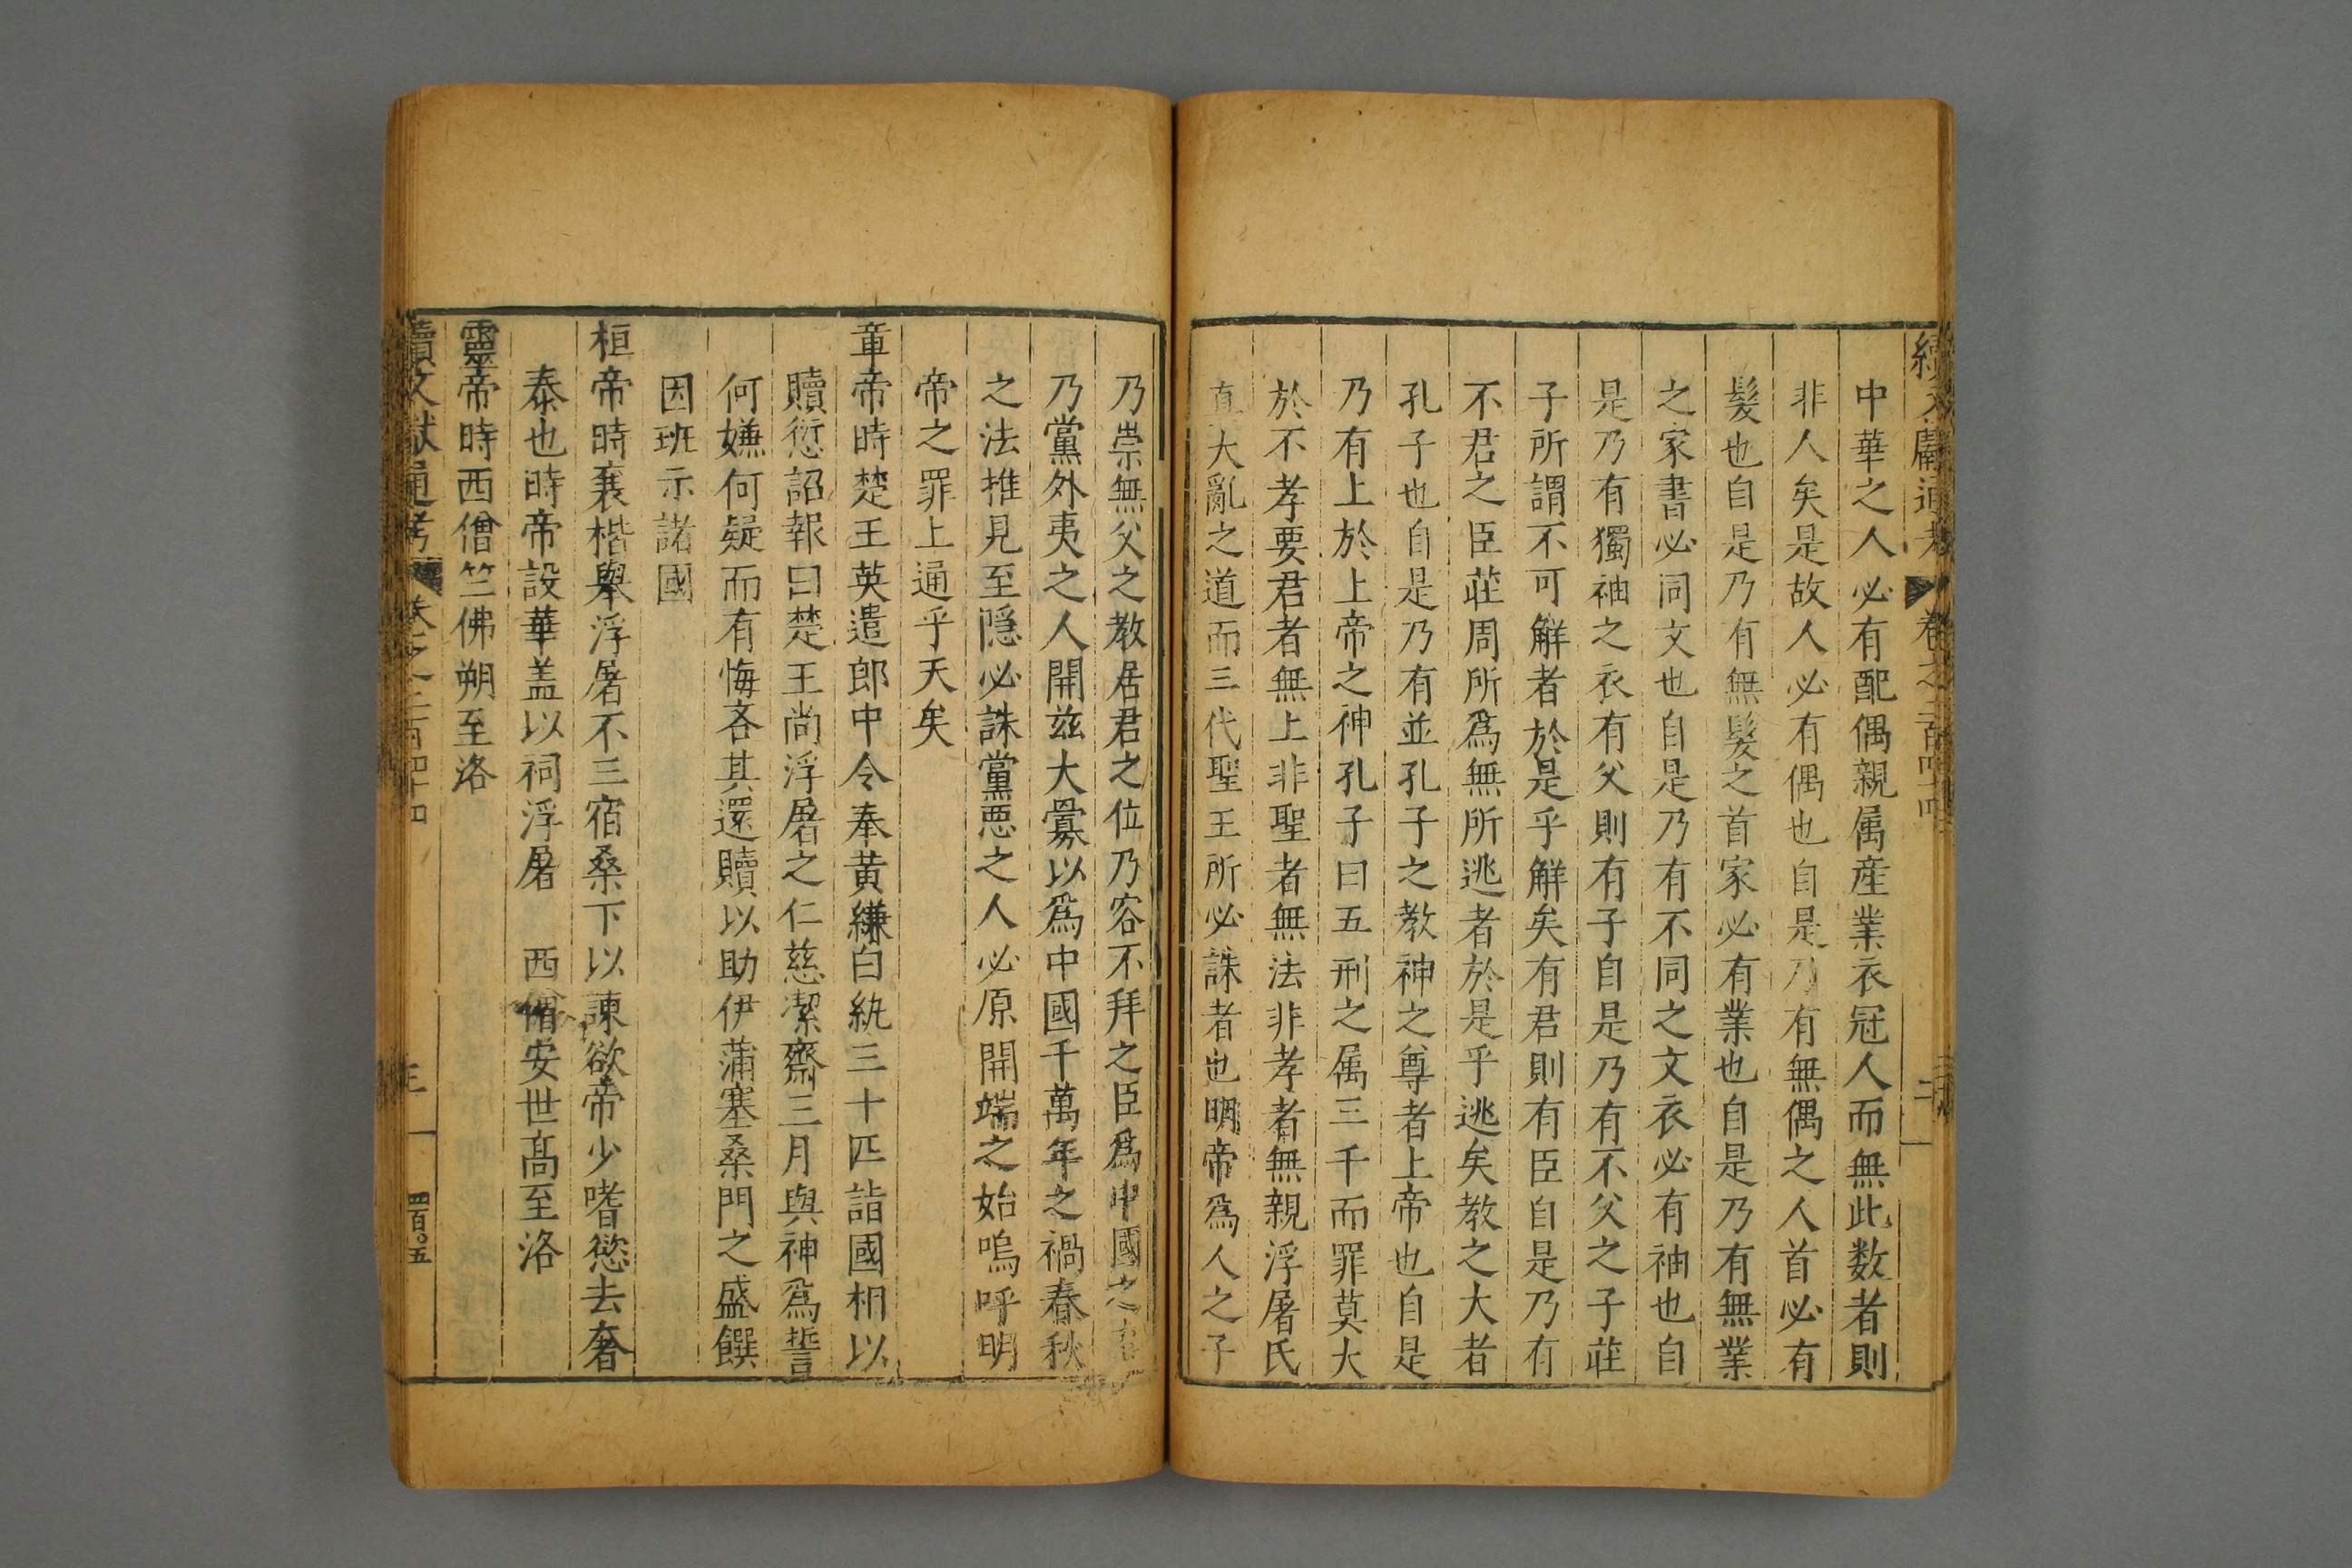 續文獻通考 卷之二百四十四 二
中華之人必有配偶親属産業衣冠人而無此数者則
非人矣是故人必有偶也自是乃有無偶之人首必有
髮也自是乃有無髮之首家必有業也自是乃有無業
之家書必同文也自是乃有不同之文衣必有袖也自
是乃有獨袖之衣有父則有子自是乃有不父之子莊
子所謂不可解者於是乎解矣有君則有臣自是乃有
不君之臣莊周所爲無所逃者於是乎逃矣教之大者
孔子也自是乃有並孔子之教神之尊者上帝也自是
乃有上於上帝之神孔子曰五刑之属三千而罪莫大
於不孝要君者無上非聖者無法非孝者無親浮屠氏
直大亂之道而三代聖王所必誅者也明帝爲人之子
乃崇無父之教居君之位乃容不拜之臣爲中國之
乃黨外夷之人開兹大釁以爲中國千萬年之禍春秋
之法推見至隱必誅黨惡之人必原開端之始嗚呼明
帝之罪上通乎天矣
章帝時楚王英遣郎中令奉黄縑白紈三十匹詣國相以
贖愆詔報曰楚王尚浮屠之仁慈潔齋三月與神爲誓
何嫌何疑而有悔吝其還贖以助伊蒲塞桑門之盛饌
因班示諸國
桓帝時襄楷舉浮屠不三宿桑下以諫欲帝少嗜慾去奢
泰也時帝設華盖以祠浮屠 西僧安世髙至洛
靈帝時西僧竺佛朔至洛
續文獻通考 卷之二百四十四 三 四百〇五